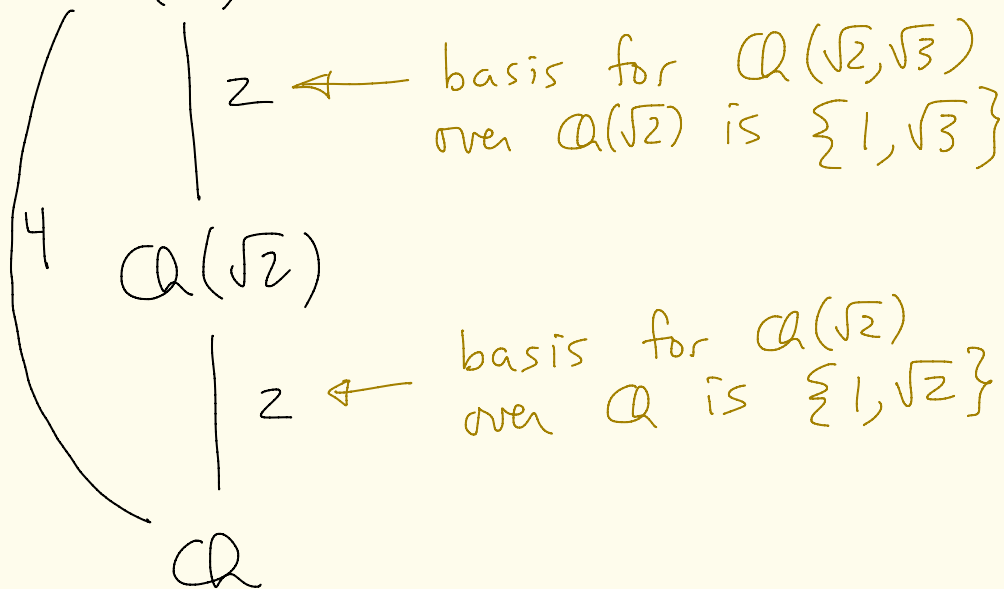 2 ← basis for ℚ(√2,√3)
over ℚ(√2) is {1,√3}
4
ℚ(√2)
basis for ℚ(√2)
2 ← over ℚ is {1,√2}
ℚ